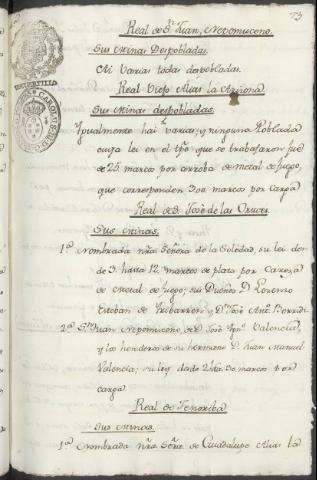 73
Real de Sn. Juan, Nepomuceno.
Sus Minas Despobladas.
Ai varias todas despobladas.
Real Viejo Alias la
Sus Minas despobladas.
Igualmente hai varias, y ninguna Poblada
cuya lei en el tpo. que se trabajaron fue
de 25. marcos por arroba de metal de fuego,
que corresponden 300 marcos por Carga
Real de Sn. José de las Cruces.
Sus Minas.
1a. Nombrada nra. Señora de la Soledad, su lei des
de 3. hasta 12. marcos de plata por Carga
de Metal de fuego; sus Dueños D. Lorenzo
Esteban de Iribarren, y D. José Anto.
2a. Sn. Juan Nepomuceno de D. José Igno. Valencia,
y los herederos de su hermano D. Juan Manuel
Valencia; su ley desde 2 hta. 30 marcos por
carga.
Real de Tenoriba
Sus Minas.
1a. Nombrada nra. Señra. de Guadalupe Alias la